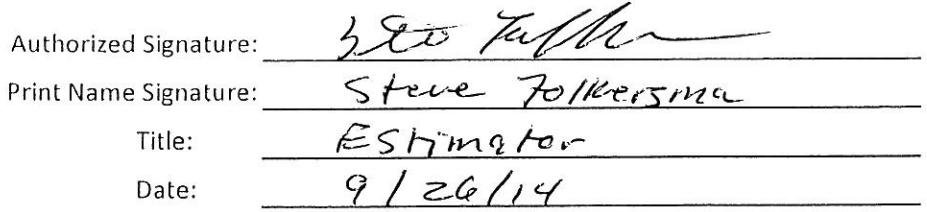 Authorized Signature:
Print Name Signature: Steve Folkersma
Title: Estimator
Date: 9/26/14